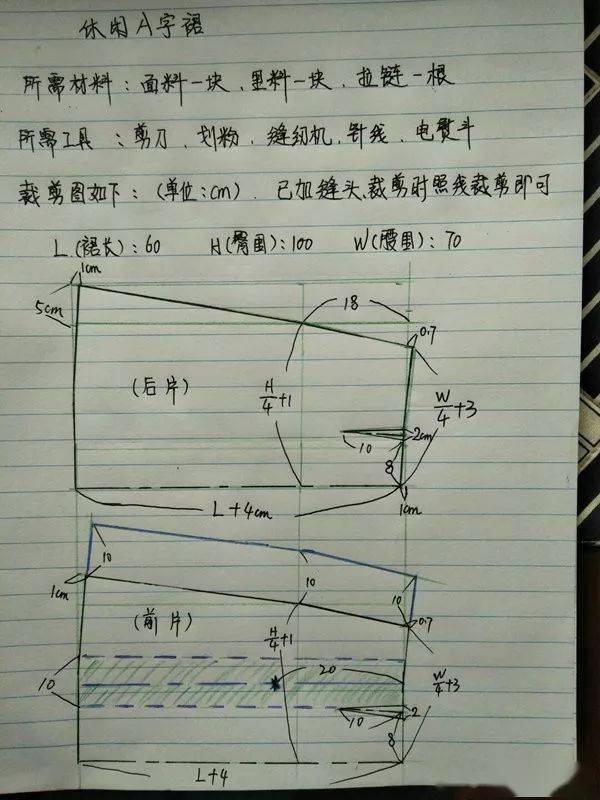 休闲A字裙
所需材料：面料一块、里料一块、拉链一根
所需工具：剪刀、划粉、缝纫机、针线、电熨斗
裁剪图如下：(单位：cm)、已加缝头、裁剪时照线裁剪即可
L(裙长)：60 H(臀围)：100 W(腰围)：70
1cm
5cm
18
0.7
(后片)
H/4+1
W/4+3
2cm
10
8
L+4cm
1cm
10
10
10
1cm
0.7
(前片)
H/4+1
20
10
W/4+3
2
10
8
L+4